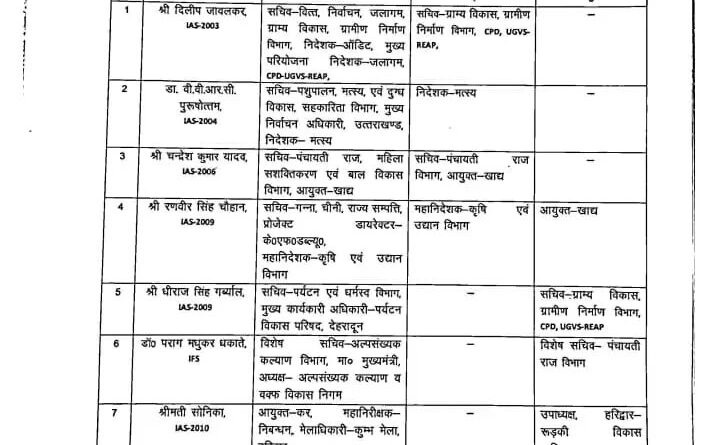 1
श्री दिलीप जावलकर,
IAS-2003
सचिव–वित्त, निर्वाचन, जलागम,
ग्राम्य विकास, ग्रामीण निर्माण
विभाग, निदेशक–ऑडिट, मुख्य
परियोजना निदेशक–जलागम,
CPD-UGVS-REAP,
सचिव–ग्राम्य विकास, ग्रामीण
निर्माण विभाग, CPD, UGVS-
REAP,
–
2
डा. वी.वी.आर.सी.
पुरूषोत्तम,
IAS-2004
सचिव–पशुपालन, मत्स्य, एवं दुग्ध
विकास, सहकारिता विभाग, मुख्य
निर्वाचन अधिकारी, उत्तराखण्ड,
निदेशक– मत्स्य
निदेशक–मत्स्य
–
3
श्री चन्द्रेश कुमार यादव,
IAS-2006
सचिव–पंचायती राज, महिला
सशक्तिकरण एवं बाल विकास
विभाग, आयुक्त–खाद्य
सचिव–पंचायती राज
विभाग, आयुक्त–खाद्य
–
4
श्री रणवीर सिंह चौहान,
IAS-2009
सचिव–गन्ना, चीनी, राज्य सम्पत्ति,
प्रोजेक्ट डायरेक्टर–
के०एफ०डब्ल्यू०,
महानिदेशक–कृषि एवं उद्यान
विभाग
महानिदेशक–कृषि एवं
उद्यान विभाग
आयुक्त–खाद्य
5
श्री धीराज सिंह गर्ब्याल,
IAS-2009
सचिव–पर्यटन एवं धर्मस्व विभाग,
मुख्य कार्यकारी अधिकारी–पर्यटन
विकास परिषद, देहरादून
–
सचिव–ग्राम्य विकास,
ग्रामीण निर्माण विभाग,
CPD, UGVS-REAP
6
डॉ० पराग मधुकर धकाते,
IFS
विशेष सचिव–अल्पसंख्यक
कल्याण विभाग, मा० मुख्यमंत्री,
अध्यक्ष– अल्पसंख्यक कल्याण व
वक्फ विकास निगम
–
विशेष सचिव– पंचायती
राज विभाग
7
श्रीमती सोनिका,
IAS-2010
आयुक्त–कर, महानिरीक्षक–
निबन्धन, मेलाधिकारी–कुम्भ मेला,
–
उपाध्यक्ष, हरिद्वार–
रूड़की विकास